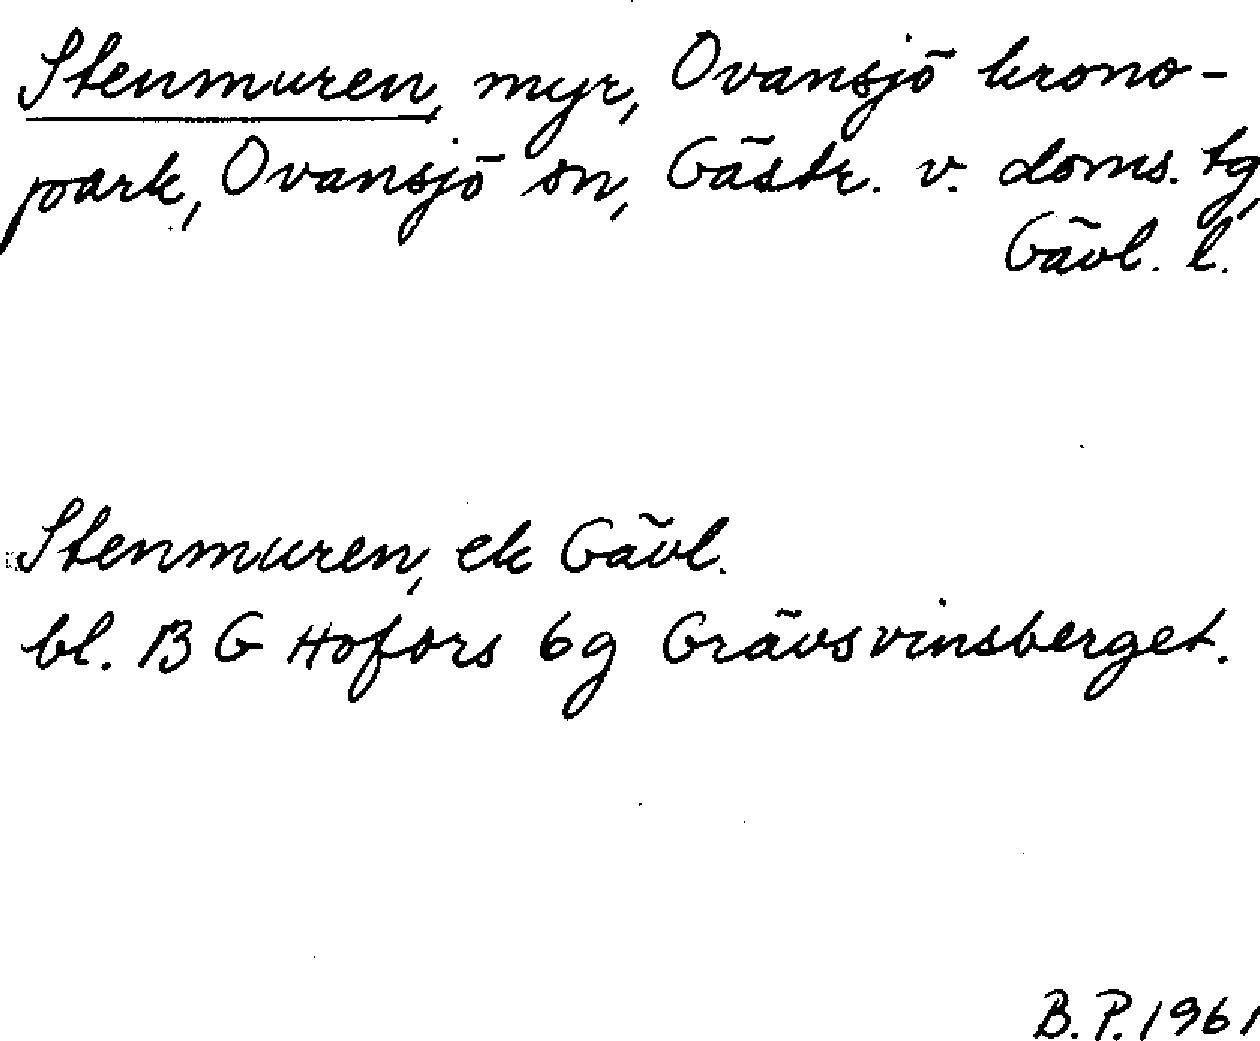 Stenmuren, myr, Ovansjö krono-
park, Ovansjö sn, Gästr. v. doms. tg,
Gävl. l.
Stenmuren, ek Gävl.
bl. 13 G Hofors 6g Grävsvinsberget.
B. P. 1961